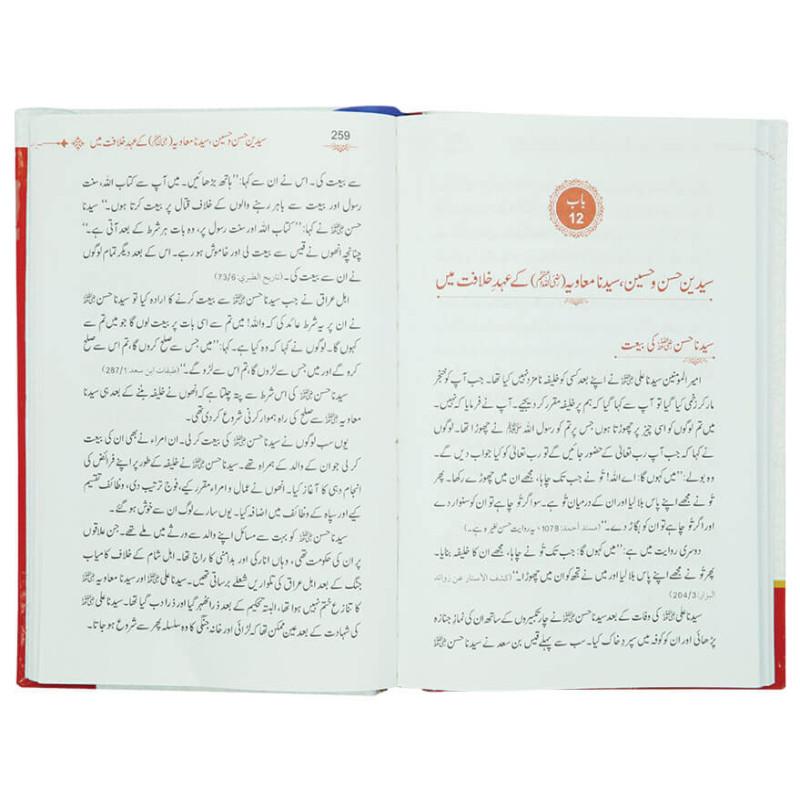 باب
12
سیدین حسن و حسین، سیدنا معاویہ (رضی اللہ عنہم) کے عہدِ خلافت میں
سیدنا حسن رضی اللہ عنہ کی بیعت
امیر المومنین سیدنا علی رضی اللہ عنہ نے اپنے بعد کسی کو خلیفہ نامزد نہیں کیا تھا۔ جب آپ کو خنجر
مار کر زخمی کیا گیا تو آپ سے کہا گیا کہ ہم پر خلیفہ مقرر کر دیجیے۔ آپ نے فرمایا کہ نہیں۔
میں تم لوگوں کو اسی چیز پر چھوڑتا ہوں جس پر تم کو رسول اللہ ﷺ نے چھوڑا تھا۔ لوگوں
نے کہا کہ جب آپ رب تعالیٰ کے حضور جائیں گے تو رب تعالیٰ کو کیا جواب دیں گے۔
وہ بولے: ’’میں کہوں گا: اے اللہ! تُو نے جب تک چاہا، مجھے ان میں چھوڑے رکھا۔ پھر
تُو نے مجھے اپنے پاس بلا لیا اور ان کے درمیان تُو ہے۔ سو اگر تُو چاہے تو ان کو سنوار دے
اور اگر تُو چاہے تو ان کو بگاڑ دے۔‘‘ (مسند أحمد: 1078، یہ روایت حسن لغیرہ ہے۔)
دوسری روایت میں ہے: ’’میں کہوں گا: جب تک تُو نے چاہا، مجھے ان کا خلیفہ بنایا۔
پھر تُو نے مجھے اپنے پاس بلا لیا اور میں نے تجھ کو ان میں چھوڑا۔‘‘ (کشف الأستار عن زوائد
البزار: 204/3)
سیدنا علی رضی اللہ عنہ کی وفات کے بعد سیدنا حسن رضی اللہ عنہ نے چار تکبیروں کے ساتھ ان کی نمازِ جنازہ
پڑھائی اور ان کو کوفہ میں سپردِ خاک کیا۔ سب سے پہلے قیس بن سعد نے سیدنا حسن رضی اللہ عنہ
259
سیدین حسن و حسین، سیدنا معاویہ (رضی اللہ عنہم) کے عہدِ خلافت میں
سے بیعت کی۔ اس نے ان سے کہا: ’’ہاتھ بڑھائیں۔ میں آپ سے کتاب اللہ، سنت
رسول اور بیعت سے باہر رہنے والوں کے خلاف قتال پر بیعت کرتا ہوں۔‘‘ سیدنا
حسن رضی اللہ عنہ نے کہا: ’’کتاب اللہ اور سنت رسول پر، وہ بات ہر شرط کے بعد آتی ہے۔‘‘
چنانچہ انھوں نے قیس سے بیعت لی اور خاموش ہو رہے۔ اس کے بعد دیگر تمام لوگوں
نے ان سے بیعت کی۔ (تاریخ الطبري: 73/6)
اہل عراق نے جب سیدنا حسن رضی اللہ عنہ سے بیعت کرنے کا ارادہ کیا تو سیدنا حسن رضی اللہ عنہ
نے ان پر یہ شرط عائد کی کہ واللہ! میں تم سے اسی بات پر بیعت لوں گا جو میں تم سے
کہوں گا۔ لوگوں نے کہا کہ وہ کیا ہے۔ کہا: ’’میں جس سے صلح کروں گا، تم اس سے صلح
کرو گے اور میں جس سے لڑوں گا، تم اس سے لڑو گے۔‘‘ (طبقات ابن سعد: 287/1)
سیدنا حسن رضی اللہ عنہ کی اس شرط سے پتہ چلتا ہے کہ انھوں نے خلیفہ بننے کے بعد ہی سیدنا
معاویہ رضی اللہ عنہ سے صلح کی راہ ہموار کرنی شروع کر دی تھی۔
یوں سب لوگوں نے سیدنا حسن رضی اللہ عنہ کی بیعت کر لی۔ ان امراء نے بھی ان کی بیعت
کر لی جو ان کے والد کے ہمراہ تھے۔ سیدنا حسن رضی اللہ عنہ نے خلیفہ کے طور پر اپنے فرائض کی
انجام دہی کا آغاز کیا۔ انھوں نے عمال و امراء مقرر کیے، فوج ترتیب دی، وظائف تقسیم
کیے اور سپاہ کے وظائف میں اضافہ کیا۔ یوں سارے لوگ ان سے خوش ہو گئے۔
سیدنا حسن رضی اللہ عنہ کو بہت سے مسائل اپنے والد سے ورثے میں ملے تھے۔ جن علاقوں
پر ان کی حکومت تھی، وہاں انارکی اور بدامنی کا راج تھا۔ اہل شام کے خلاف کامیاب
جنگ کے بعد اہل عراق کی تلواریں شعلے برساتی تھیں۔ سیدنا علی رضی اللہ عنہ اور سیدنا معاویہ رضی اللہ عنہ
کا تنازع ختم نہیں ہوا تھا، البتہ تحکیم کے بعد ذرا ٹھہر گیا اور ذرا دب گیا تھا۔ سیدنا علی رضی اللہ عنہ
کی شہادت کے بعد عین ممکن تھا کہ لڑائی اور خانہ جنگی کا وہ سلسلہ پھر سے شروع ہو جاتا۔